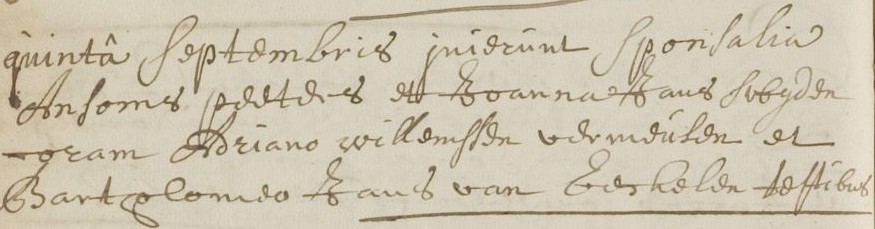 quintâ septembris inierunt sponsalia
Ansoms peeters et Joanna Jans
coram Adriano willemssen vermeulen et
Bartolomeo Jans van Eerkelen testibus